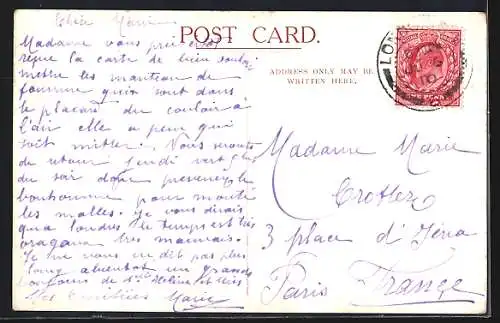 Chère Marie
POST CARD.
ADDRESS ONLY MAY BE
WRITTEN HERE.
LON
PENNY
Madame vous prie
la carte de bien vouloir
mettre les manteau de
fourrure qui sont dans
le placard du couloir à
l'air elle a peur qui
soit mitter. Nous serons
de retour jeudi vert 9h
du soir donc prevenez le
bonhomme pour monté
les malles. Je vous dirais
qua londres le temps est très
oragano très mauvais.
Je ne vous en dit pas plus
long
St Hélène et
Les amitiées Marie
Madame Marie
3 place d'Iéna
Paris France